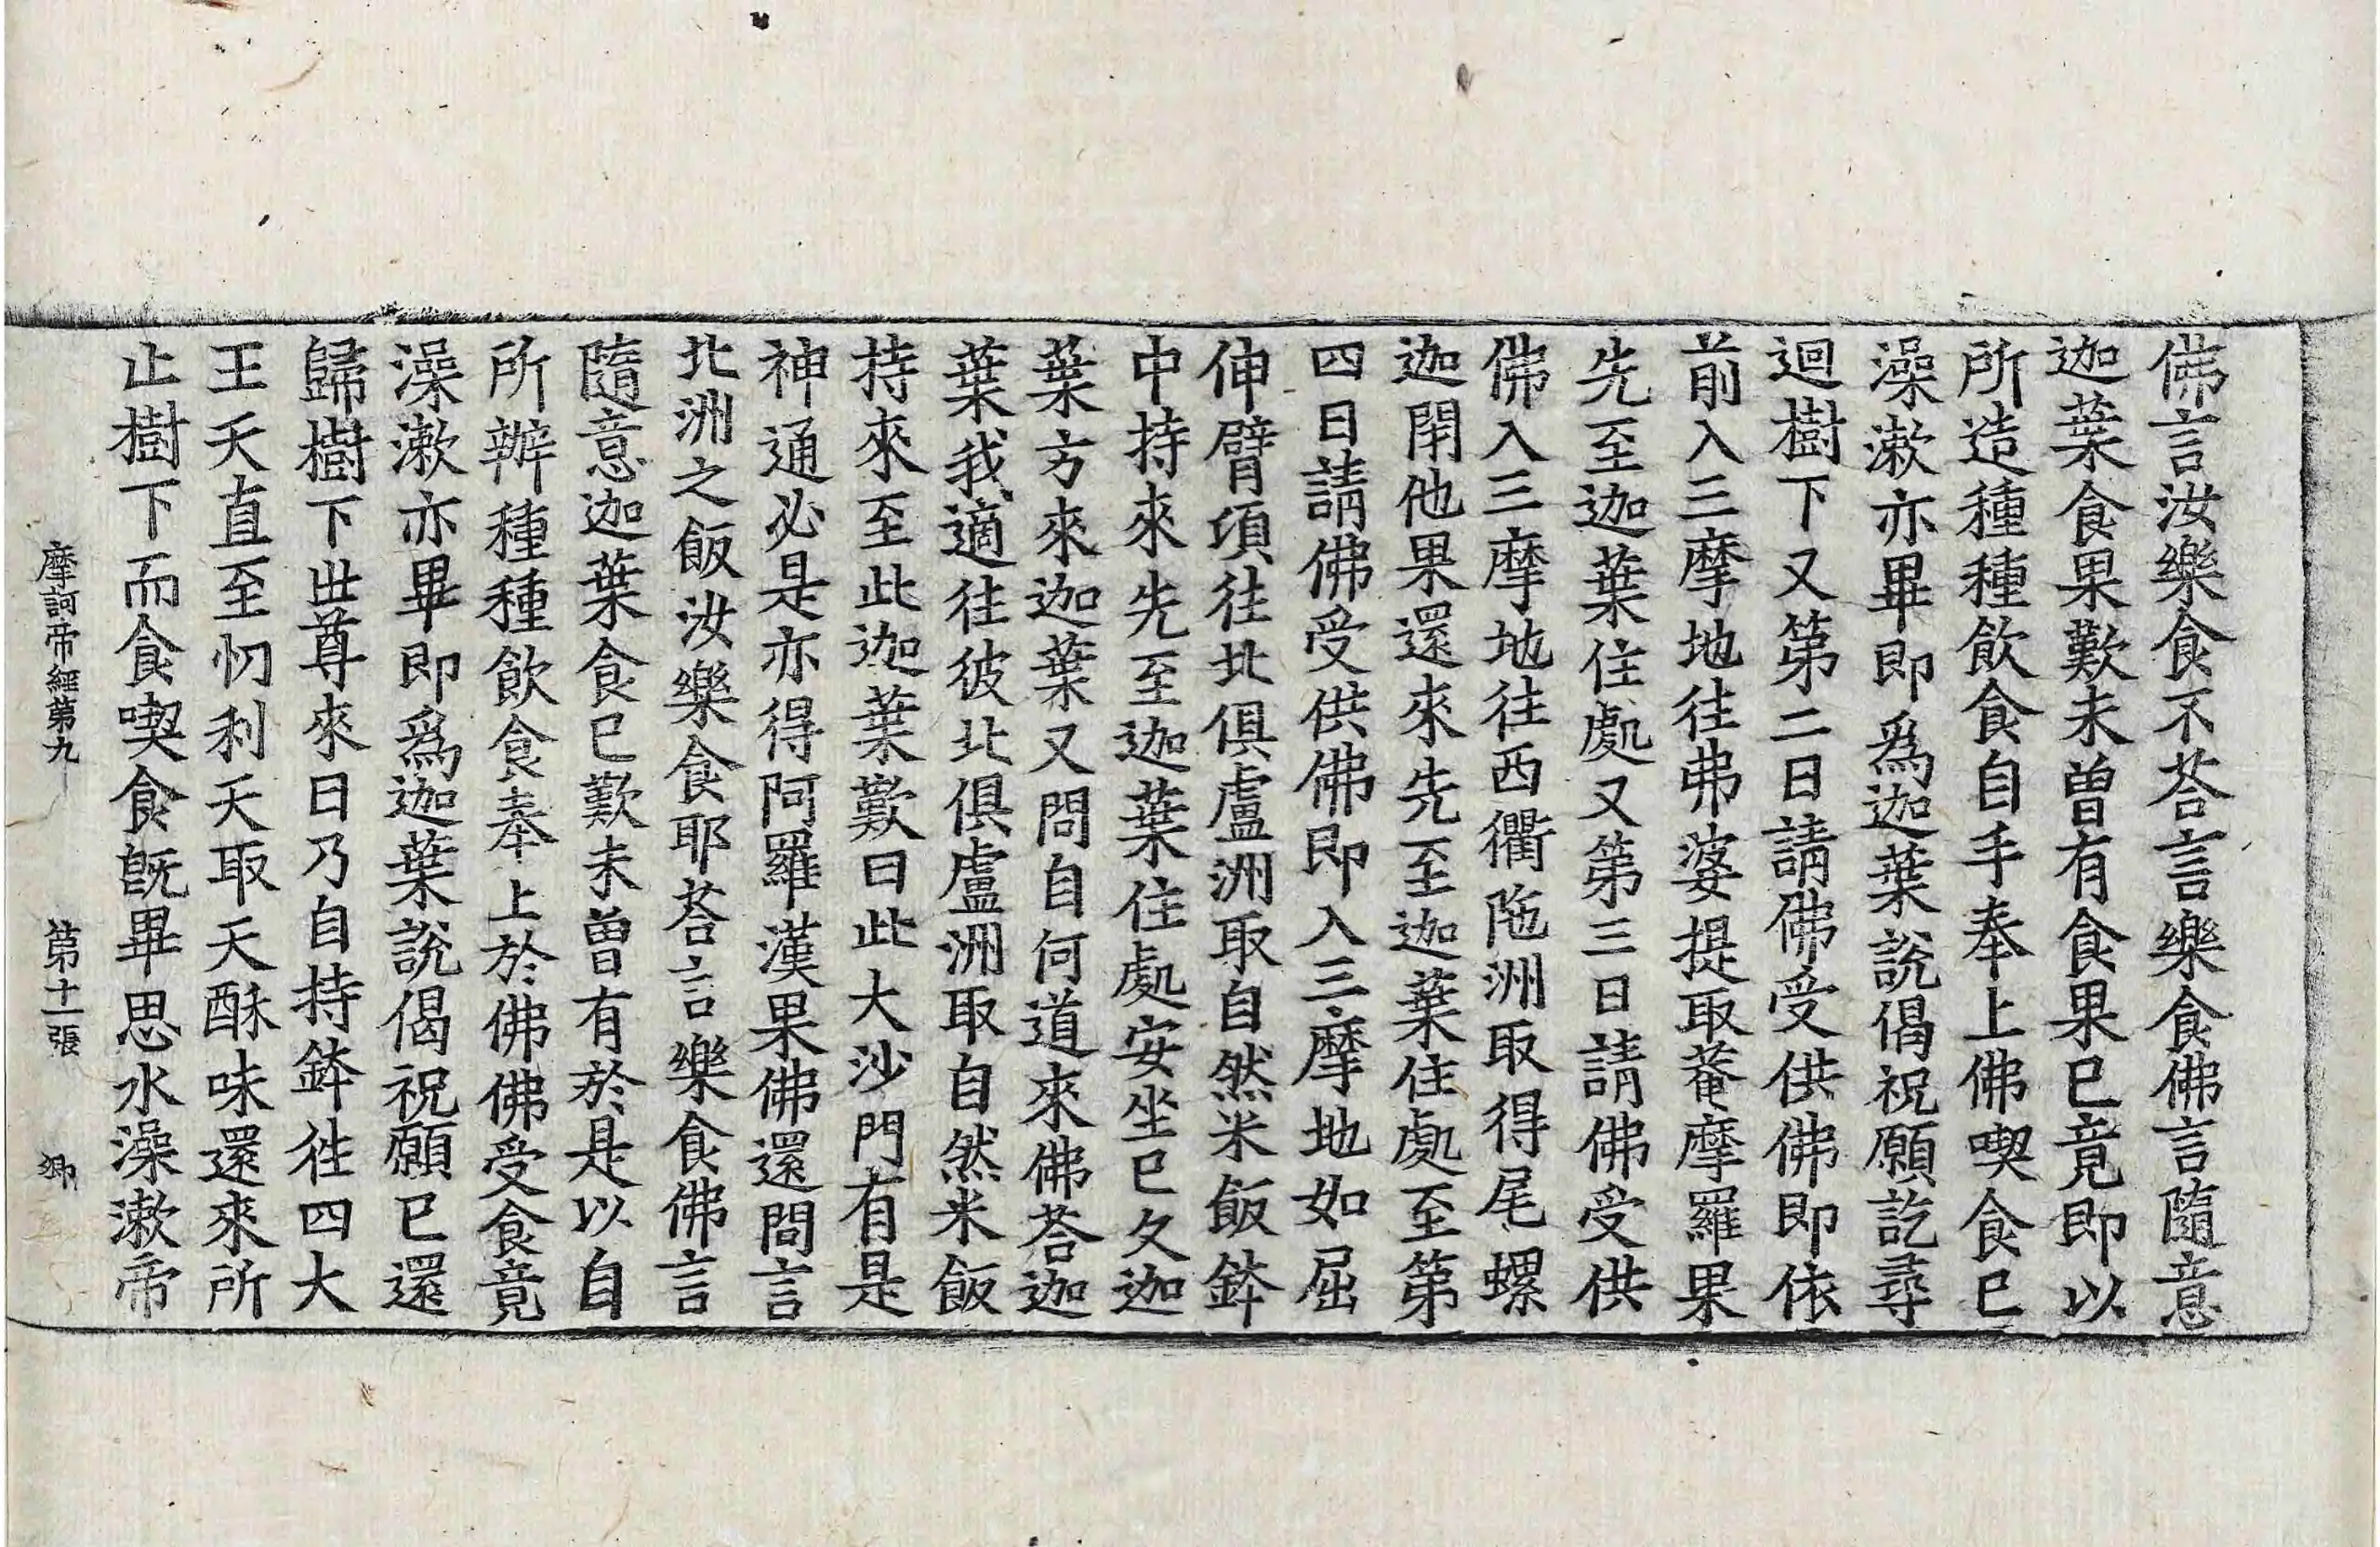 佛言汝樂食不荅言樂食佛言隨意
迦葉食果歎未曾有食果已竟即以
所造種種飲食自手奉上佛喫食已
澡漱亦畢即爲迦葉說偈祝願訖尋
迴樹下又第二日請佛受供佛即依
前入三摩地往弗婆提取菴摩羅果
先至迦葉住處又第三日請佛受供
佛入三摩地往西衢陁洲取得尾螺
迦閇他果還來先至迦葉住處至第
四日請佛受供佛即入三摩地如屈
伸臂項往北俱盧洲取自然米飯鉢
中持來先至迦葉住處安坐已久迦
葉方來迦葉又問自何道來佛荅迦
葉我適往彼北俱盧洲取自然米飯
持來至此迦葉歎曰此大沙門有是
神通必是亦得阿羅漢果佛還問言
北洲之飯汝樂食耶荅言樂食佛言
隨意迦葉食已歎未曾有於是以自
所辦種種飲食奉上於佛佛受食竟
澡漱亦畢即爲迦葉說偈祝願已還
歸樹下世尊來日乃自持鉢往四大
王天直至忉利天取天酥味還來所
止樹下而食喫食旣畢思水澡漱帝
摩訶帝經第九 第十一張 卿